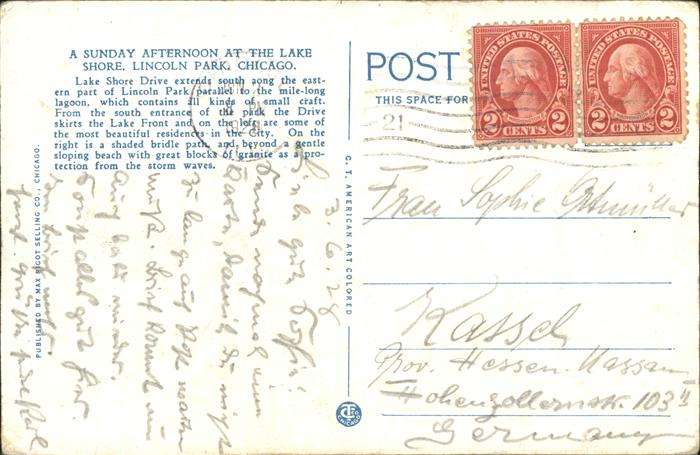 A SUNDAY AFTERNOON AT THE LAKE
SHORE, LINCOLN PARK, CHICAGO.
Lake Shore Drive extends south aong the east-
ern part of Lincoln Park parallel to the mile-long
lagoon, which contains all kinds of small craft.
From the south entrance of the park the Drive
skirts the Lake Front and on the left are some of
the most beautiful residences in the City. On the
right is a shaded bridle path, and beyond a gentle
sloping beach with great blocks of granite as a pro-
tection from the storm waves.
PUBLISHED BY MAX RIGOT SELLING CO., CHICAGO.
3. 6. 28
Liebe gute Sophie!
Sende nochmal eine
Karte, damit du nicht
zu lang auf Post warten
mußt. Brief kommt am
bald wieder.
Sonst alles gut hier.
C. T. AMERICAN ART COLORED
POST
THIS SPACE FOR
21
UNITED STATES POSTAGE
2 CENTS 2
UNITED STATES POSTAGE
2 CENTS 2
Frau Sophie
Kassel
Prov. Hessen-Nassau
Hohenzollernstr. 103 II
Germany
CT
CHICAGO